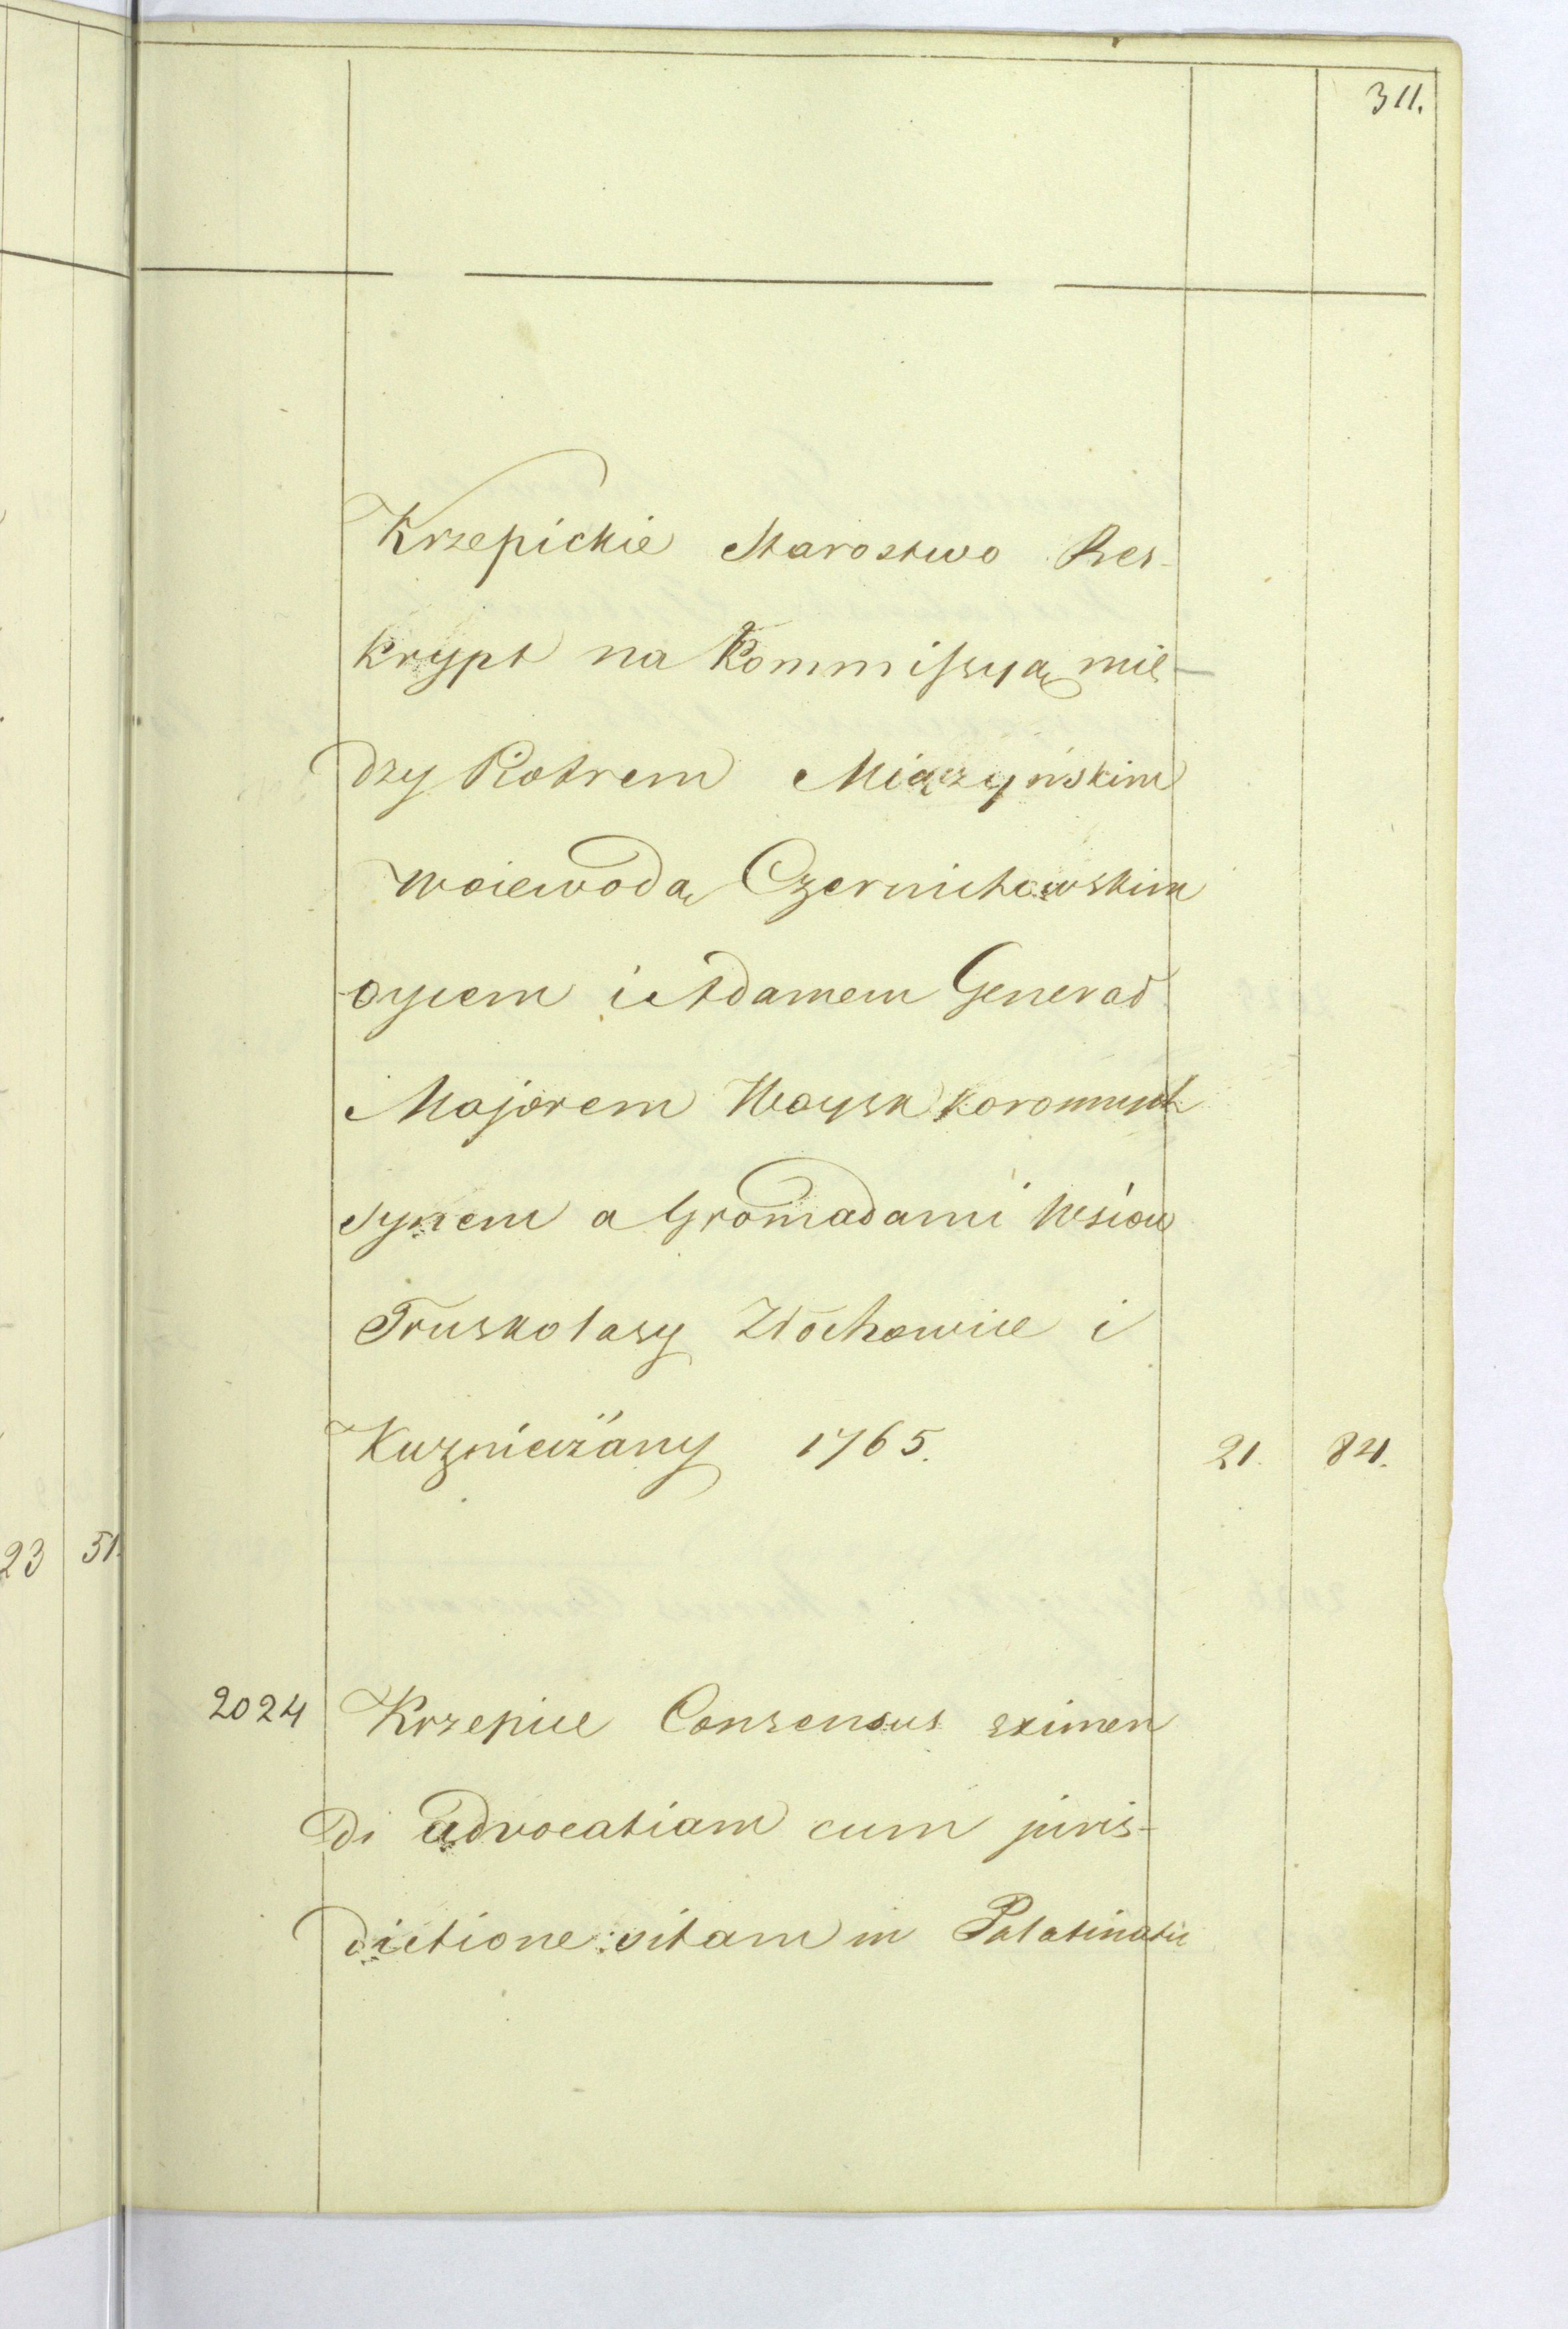 311.
Krzepickie Starostwo Res-
krypt na Kommissyą mię-
dzy Piotrem Miączyńskim
woiewodą Czernichowskim
oycem i Adamem Generał
Majorem Woysk koronnych
synem a Gromadami Wsiow
Truskolasy Złochowice i
Kuzniczany 1765. 21. 84.
23 51.
2024 Krzepice Consensus eximen
di advocatiam cum juris-
dictione vitam in Palatinatu